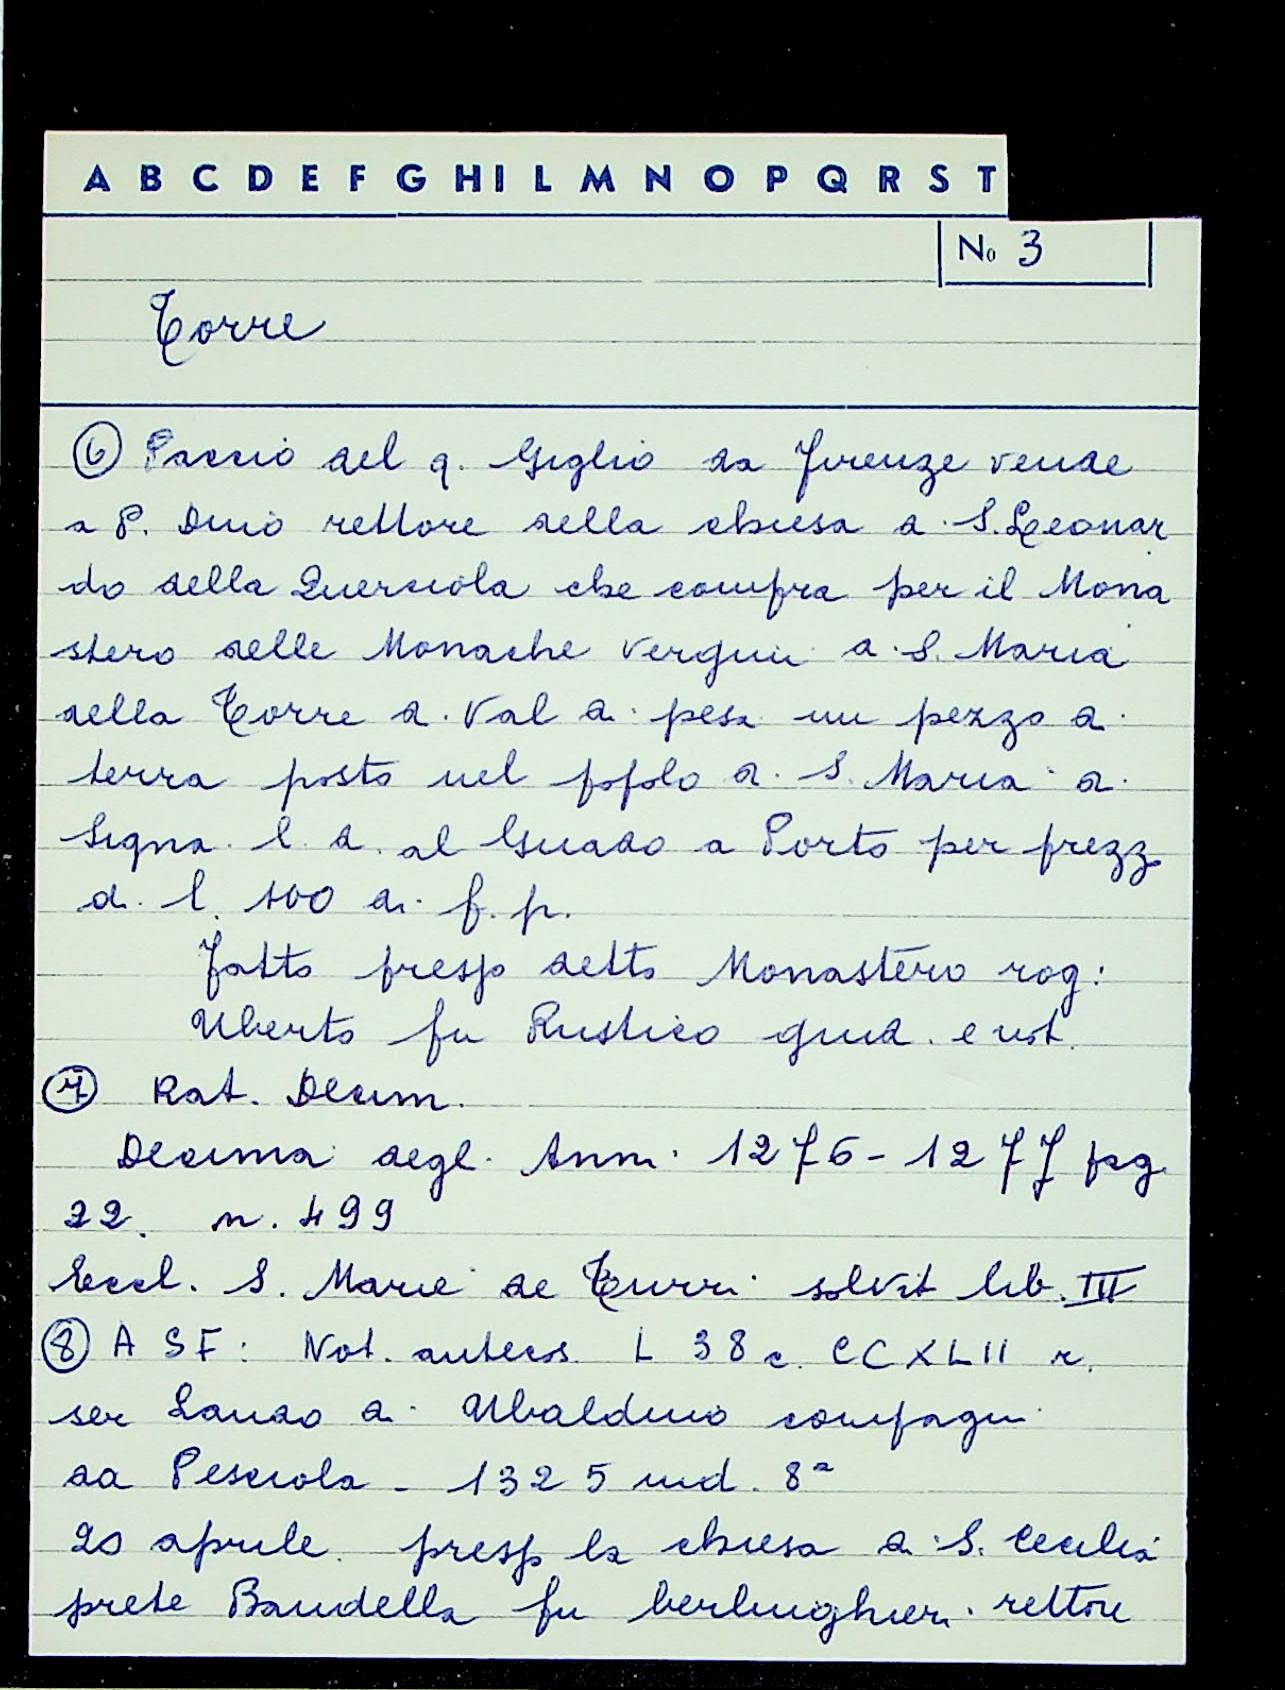 A B C D E F G H I L M N O P Q R S T
No 3
Torre
⑥ Paccio del q. Giglio da Firenze vende
a P. Dino rettore della chiesa di S. Leonar
do della Querciola che compra per il Mona
stero delle Monache vergini di S. Maria
della Torre di Val di pesa un pezzo di
terra posto nel popolo di S. Maria di
Signa. l. d. al Guado a Porto per prezz
di l. 100 di f. p.
Fatto presso detto Monastero rog:
Uberto fu Rustico giud. e not.
⑦ Rat. Decim.
Decima degli Anni 1276-1277 pag.
22. n. 499
Eccl. S. Marie de Turri solvit lib. III
⑧ A S F: Not. antecos. L 38 c. CCXLII r.
ser Lando di Ubaldino compagni
da Pesciola - 1325 ind. 8ª
20 aprile. presso la chiesa di S. Cecilia
prete Bandella fu berlinghieri rettore